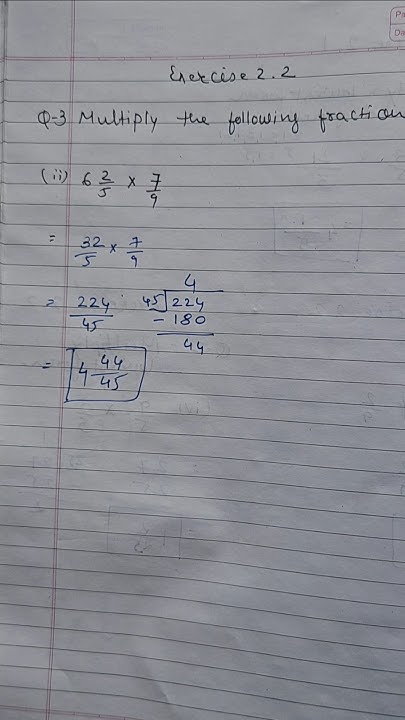 Pa
Da
Exercise 2.2
Q-3 Multiply the following fraction
(ii) 6 2/5 × 7/9
= 32/5 × 7/9
= 224/45 45)224 4
- 180
44
= 4 44/45